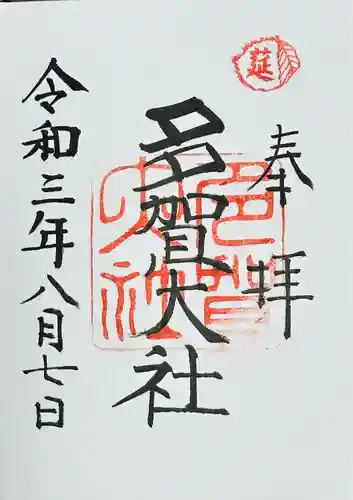 奉拝
莚
多賀大社
多賀大社
令和三年八月七日